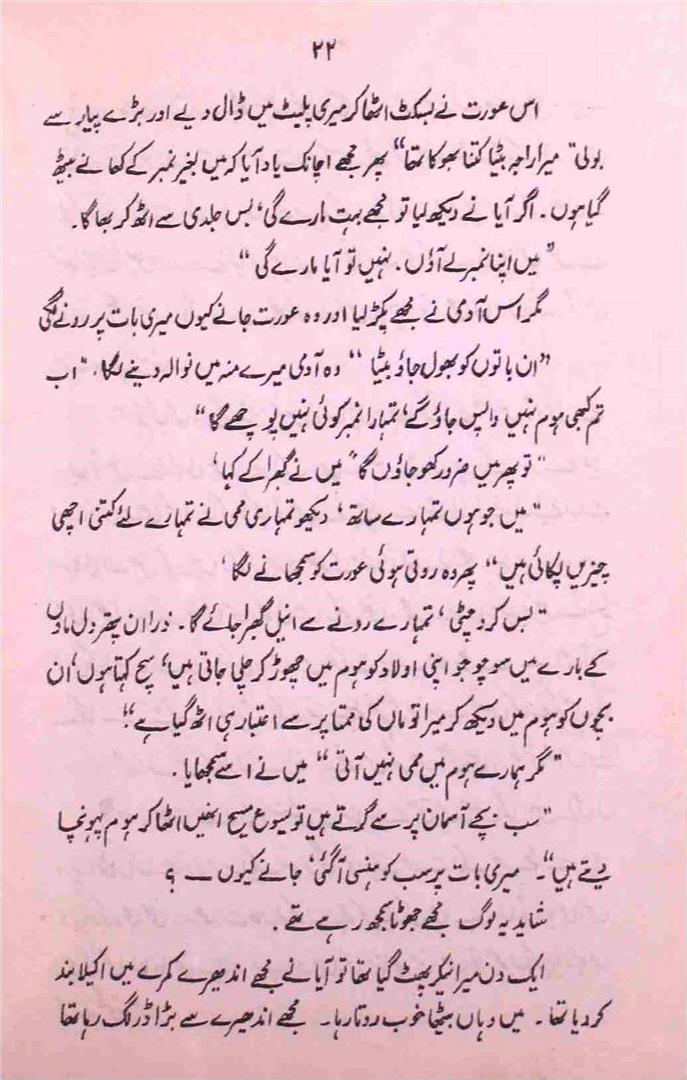 ۲۲
اس عورت نے بسکٹ اٹھا کر میری پلیٹ میں ڈال دیے اور بڑے پیار سے
بولی "میرا راجہ بیٹا کتنا بھوکا تھا" پھر مجھے اچانک یاد آیا کہ میں بغیر نمبر کے کھانے بیٹھ
گیا ہوں۔ اگر آیا نے دیکھ لیا تو مجھے بہت مارے گی، بس جلدی سے اٹھ کر بھاگا۔
"میں اپنا نمبر لے آؤں۔ نہیں تو آیا مارے گی"
مگر اس آدمی نے مجھے پکڑ لیا اور وہ عورت جانے کیوں میری بات پر رونے لگی
"ان باتوں کو بھول جاؤ بیٹا" وہ آدمی میرے منہ میں نوالہ دینے لگا۔ "اب
تم کبھی ہوم نہیں واپس جاؤ گے، تمہارا نمبر کوئی نہیں پوچھے گا"
"تو پھر میں ضرور کھو جاؤں گا" میں نے گھبرا کے کہا،
"میں جو ہوں تمہارے ساتھ، دیکھو تمہاری ممی نے تمہارے لئے کتنی اچھی
چیزیں پکائی ہیں" پھر وہ روتی ہوئی عورت کو سمجھانے لگا،
"بس کرو مپٹی، تمہارے رونے سے انیل گھبرا جائے گا۔ ذرا ان پتھر دل ماؤں
کے بارے میں سوچو جو اپنی اولاد کو ہوم میں چھوڑ کر چلی جاتی ہیں، سچ کہتا ہوں، ان
بچوں کو ہوم میں دیکھ کر میرا تو ماں کی ممتا پر سے اعتبار ہی اٹھ گیا ہے"!
"مگر ہمارے ہوم میں ممی نہیں آتی" میں نے اسے سمجھایا۔
"سب بچے آسمان پر سے گرتے ہیں تو یسوع مسیح انھیں اٹھا کر ہوم پہونچا
دیتے ہیں"۔ میری بات پر سب کو ہنسی آ گئی، جانے کیوں — ؟
شاید یہ لوگ مجھے جھوٹا سمجھ رہے تھے۔
ایک دن میرا نیکر پھٹ گیا تھا تو آیا نے مجھے اندھیرے کمرے میں اکیلا بند
کر دیا تھا۔ میں وہاں بیٹھا خوب روتا رہا۔ مجھے اندھیرے سے بڑا ڈر لگ رہا تھا